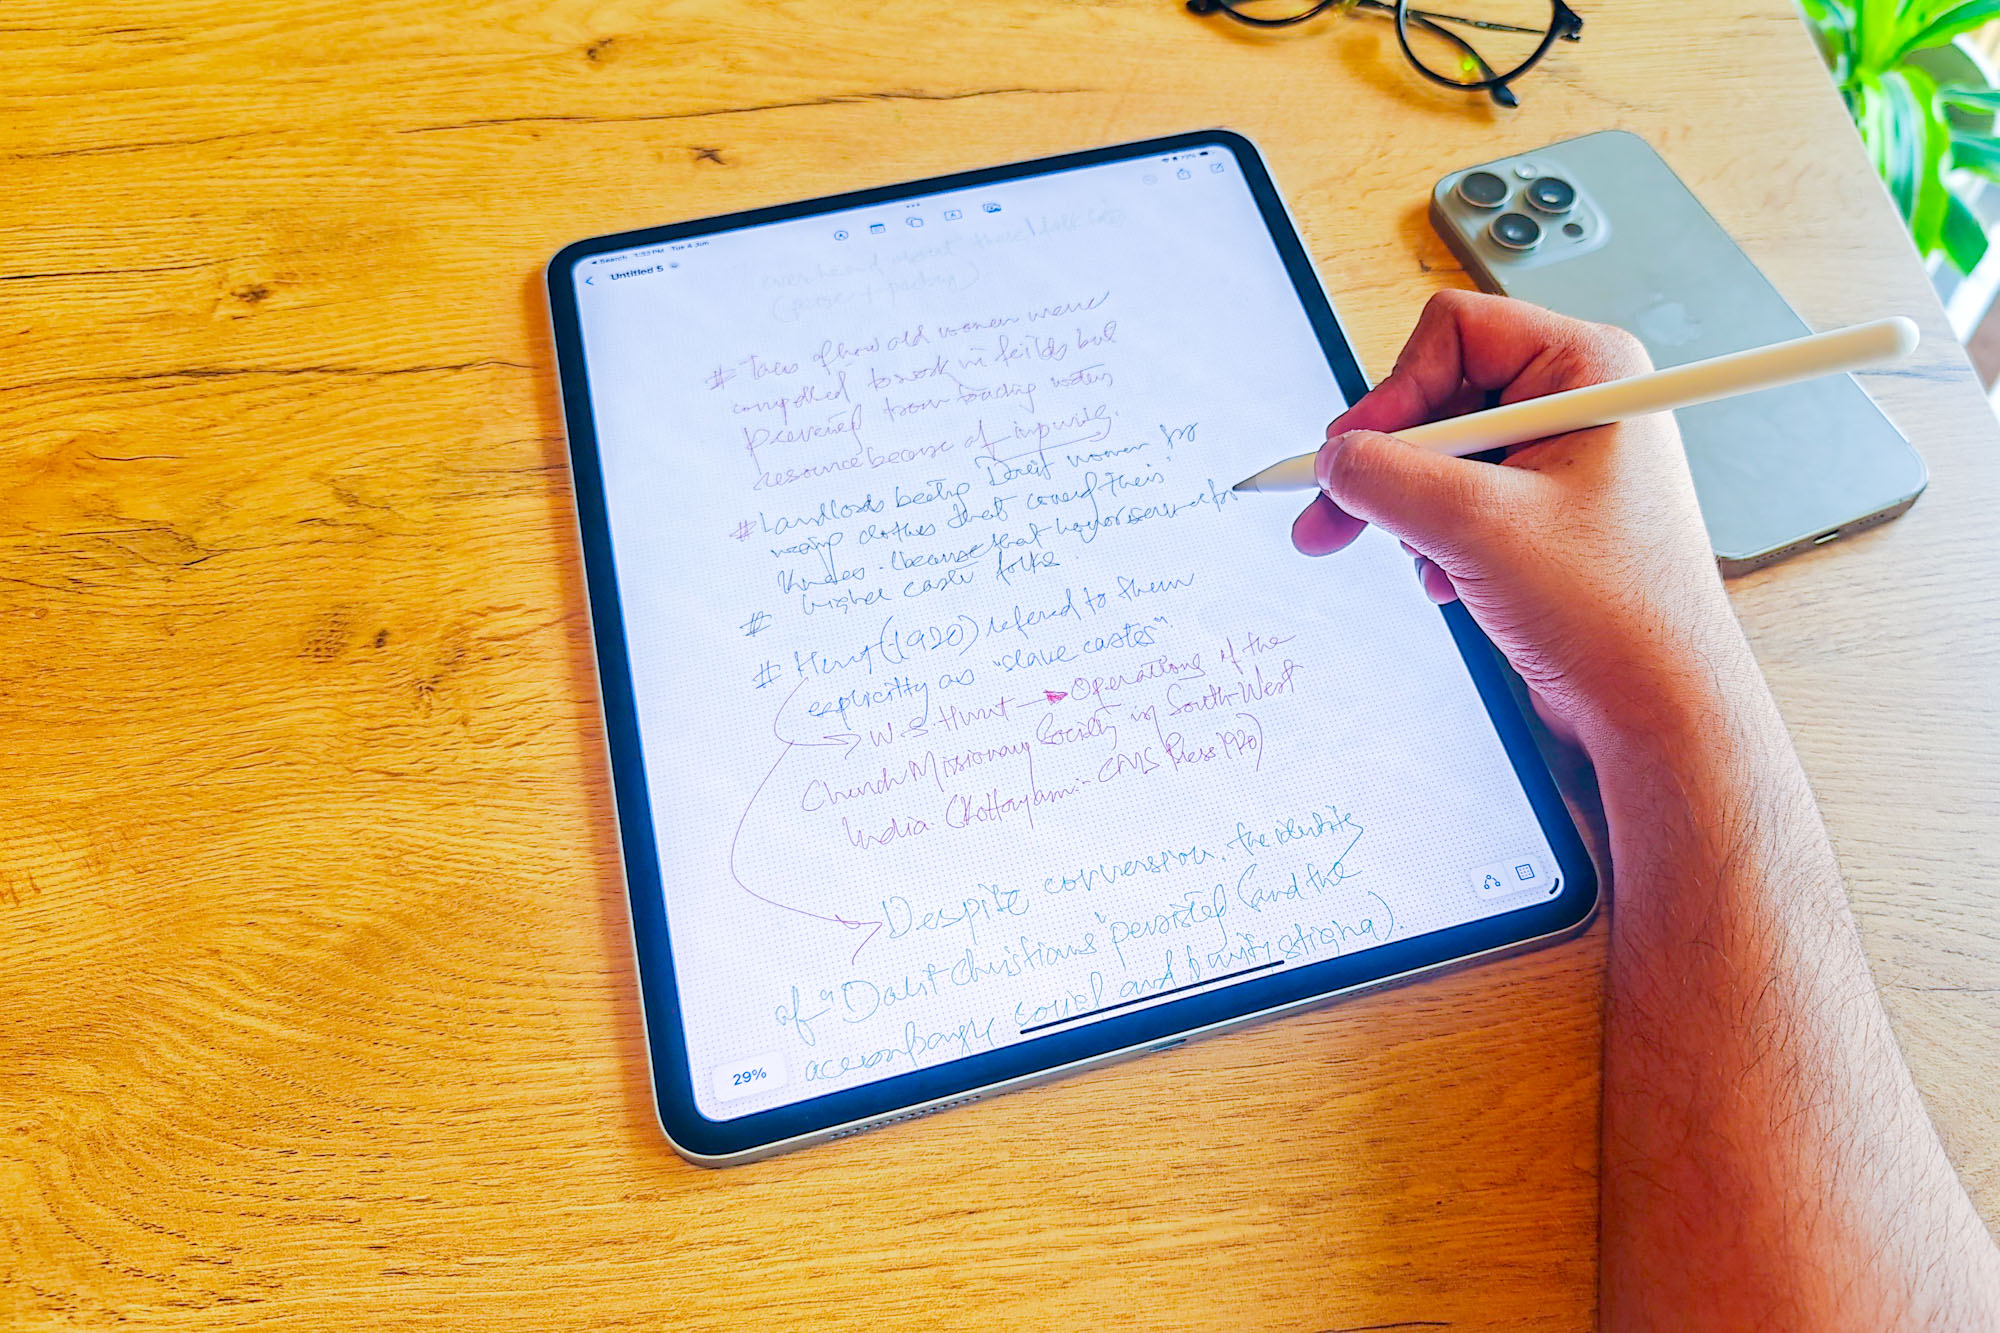 Search 1:33 PM Tue 4 Jun
Untitled 5
over hand about
# Tales of how old women were
compelled to work in feilds but
prevented from touching water
resource because of impurity.
# Landlords beating Dalit women for
wearing clothes that coverd their
Knees. (because that honor reserved for
higher caste folks.
#
# Hunt (1920) refered to them
explicitly as "slave castes".
W.S. Hunt → Operations of the
Church Missionary Society in South-West
India (Kottayam:- CMS Press 1920)
Despite conversion, the identity
of "Dalit Christians" persisted (and the
social and purity stigma).
29%